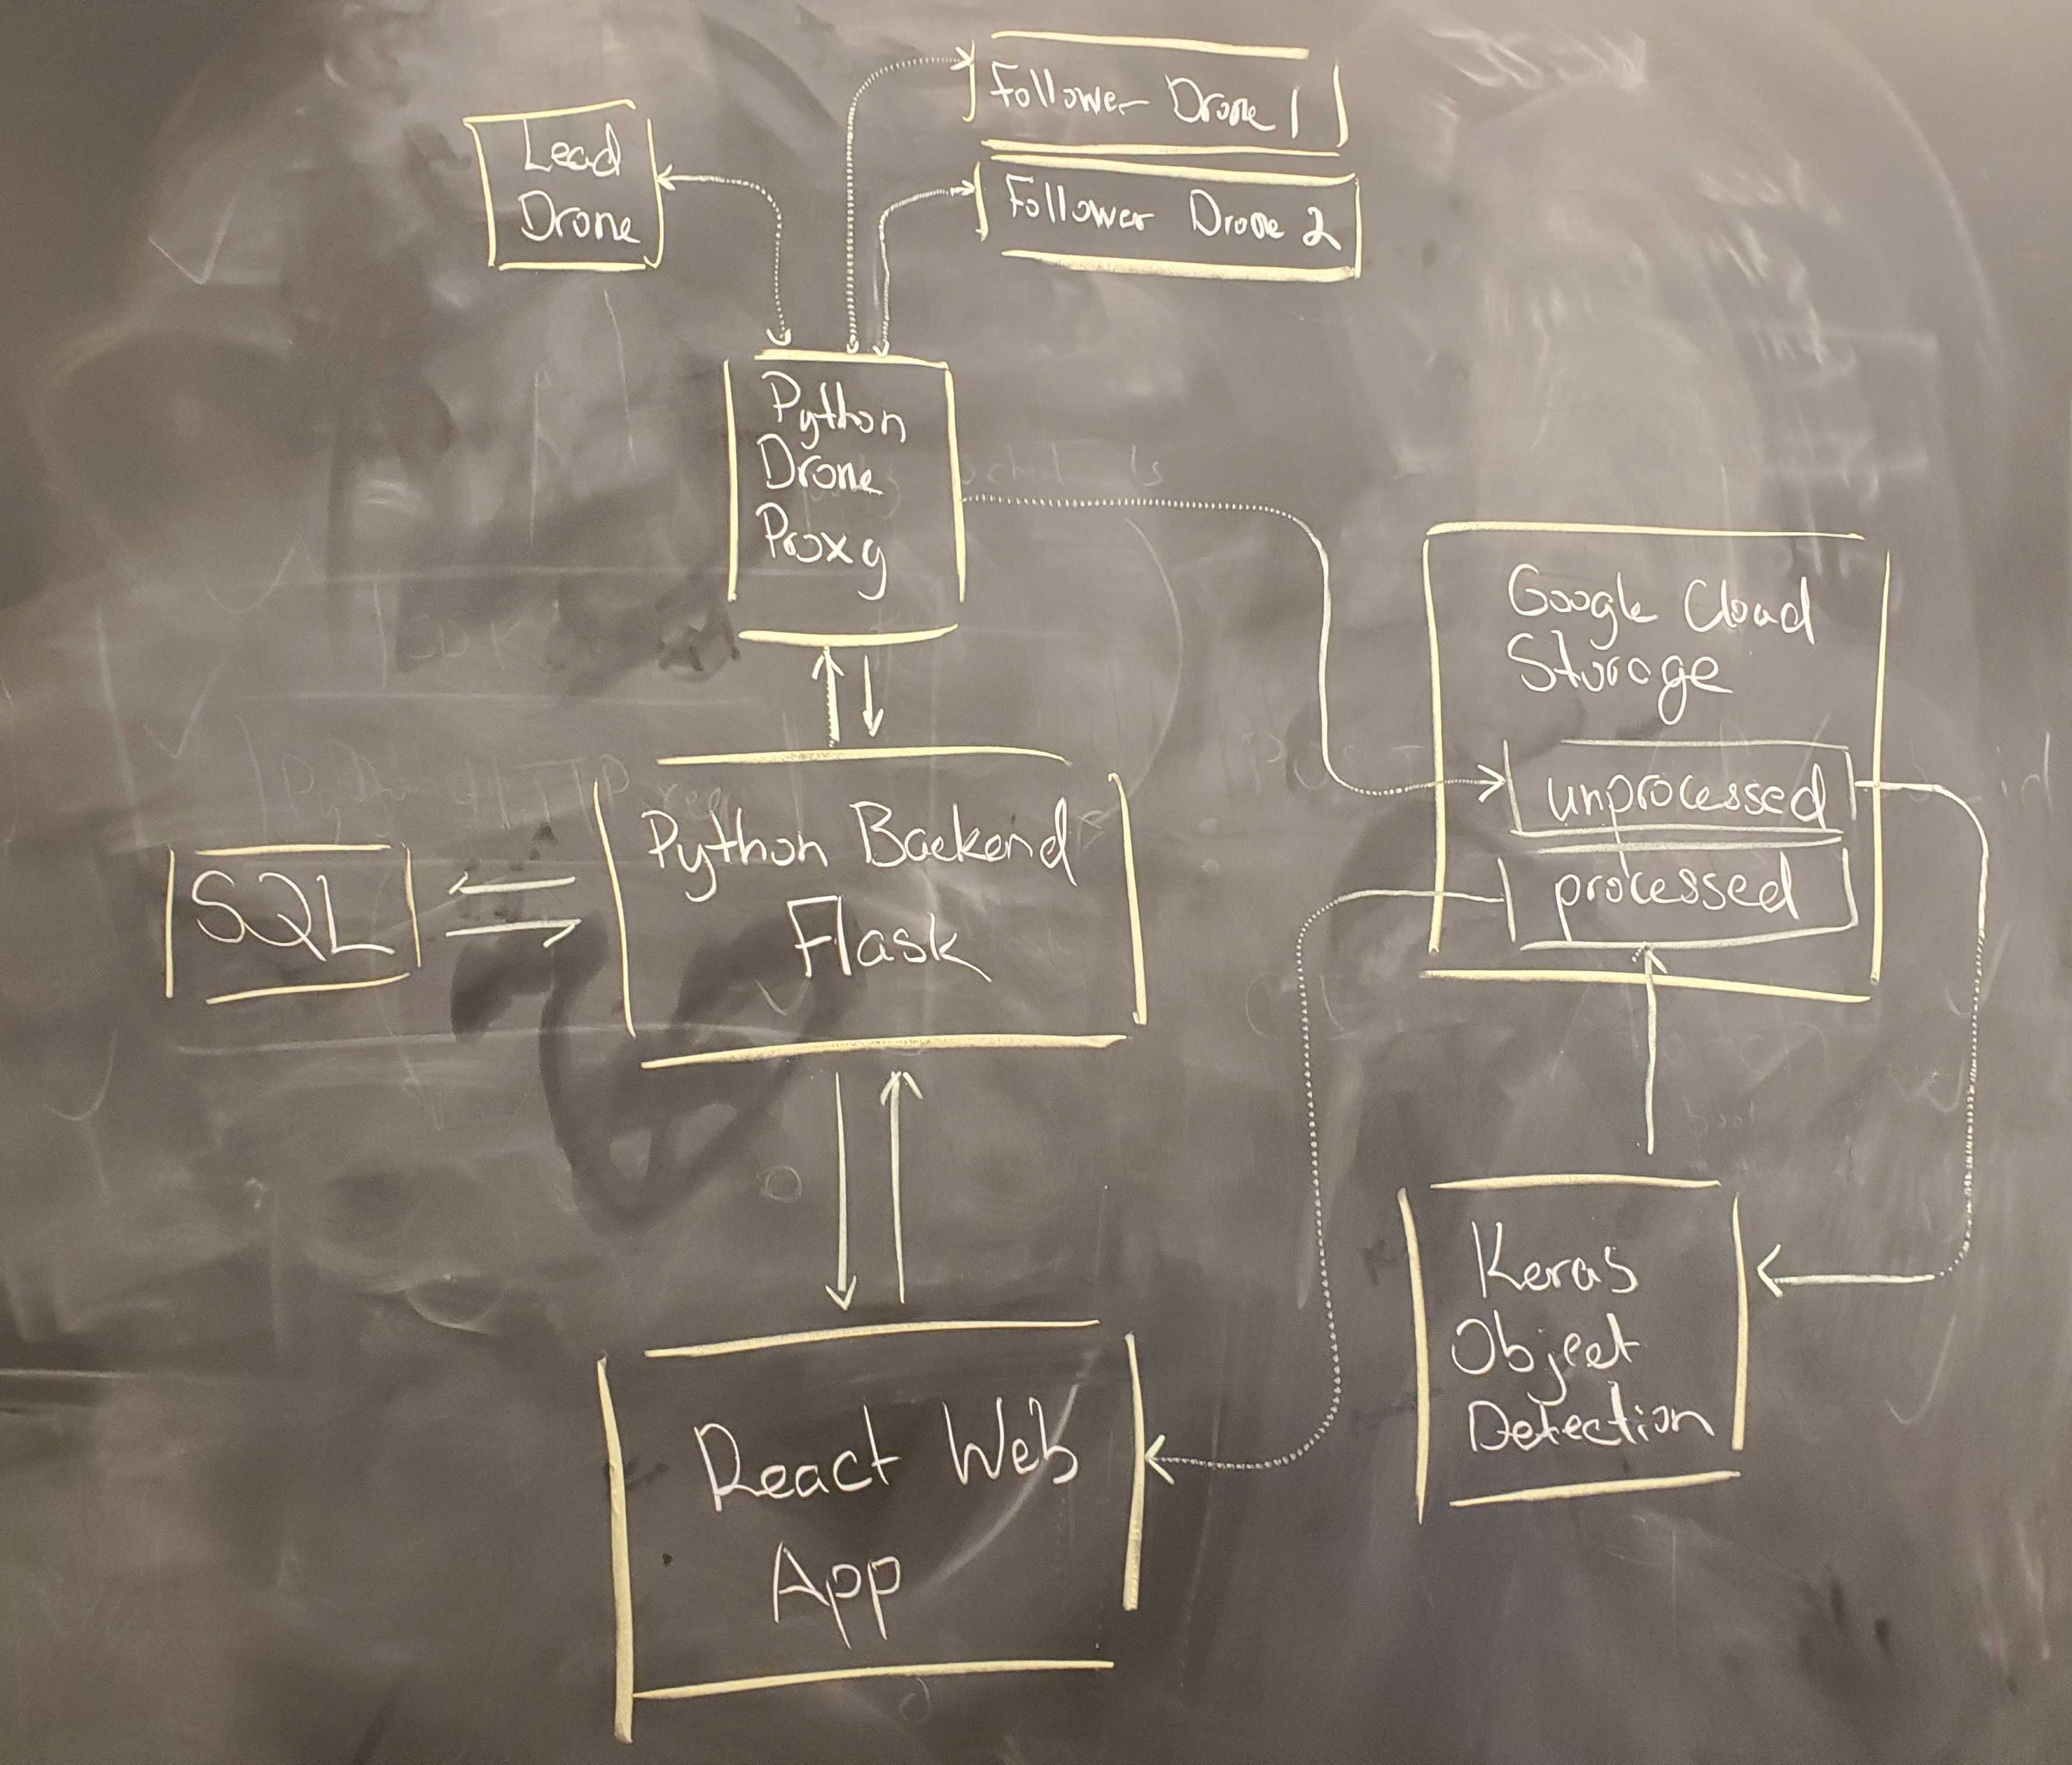 Follower Drone 1
Lead
Drone
Follower Drone 2
Python
Drone
Proxy
Google Cloud
Storage
unprocessed
Python Backend
Flask
processed
SQL
Keras
Object
Detection
React Web
App